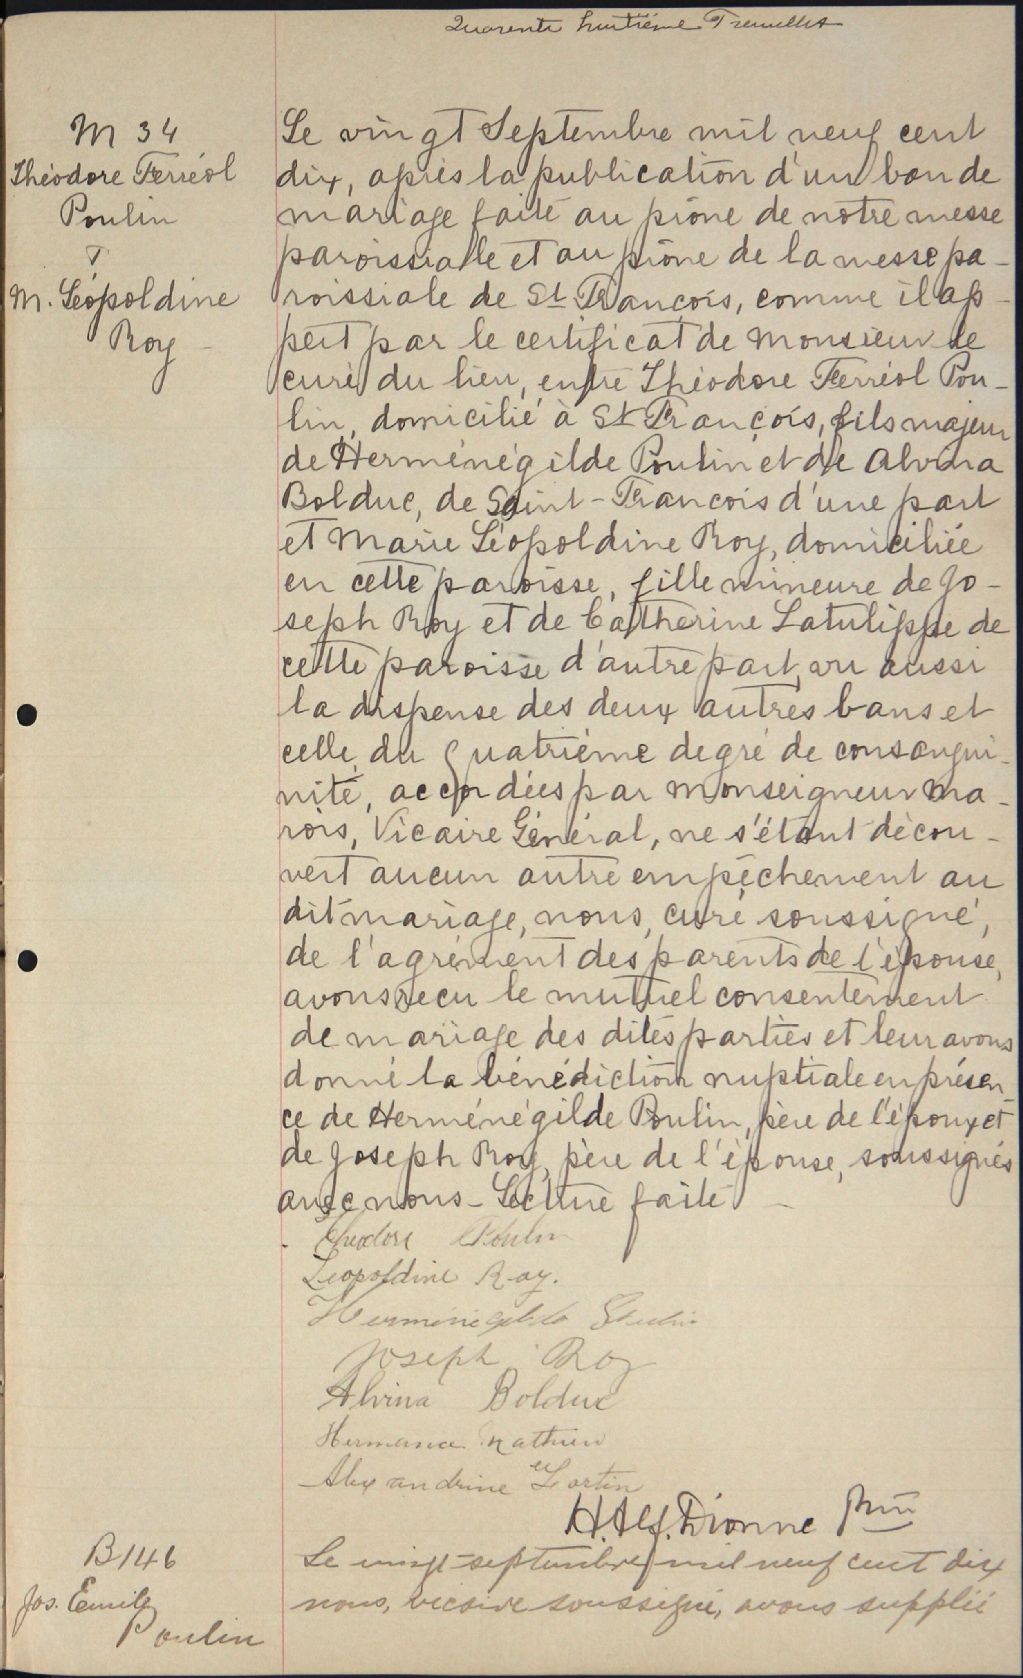 Quarente huitième Feuillet
M 34
Théodore Ferréol
Poulin
&
M. Léopoldine
Roy
Le vingt Septembre mil neuf cent
dix, après la publication d'un ban de
mariage faite au prône de notre messe
paroissiale et au prône de la messe pa-
roissiale de St François, comme il ap-
pert par le certificat de Monsieur le
curé du lieu, entre Théodore Ferréol Pou-
lin, domicilié à St François, fils majeur
de Herménégilde Poulin et de Alvina
Bolduc, de Saint-François d'une part
et Marie Léopoldine Roy, domiciliée
en cette paroisse, fille mineure de Jo-
seph Roy et de Catherine Latulippe de
cette paroisse d'autre part, vu aussi
la dispense des deux autres bans et
celle du quatrième degré de consangui-
nité, accordées par Monseigneur Ma-
rois, Vicaire Général, ne s'étant décou-
vert aucun autre empêchement au
dit mariage, nous, curé soussigné,
de l'agrément des parents de l'épouse,
avons recu le mutuel consentement
de mariage des dites parties et leur avons
donné la bénédiction nuptiale en présen-
ce de Herménégilde Poulin, père de l'époux et
de Joseph Roy, père de l'épouse, soussignés
avec nous - Lecture faite -
Théodore Poulin
Léopoldine Roy.
Herménégilde Poulin
Joseph Roy
Alvina Bolduc
Mathieu
Alexandrine Fortin
H. Alf. Dionne Ptre
B 146
Jos. Emile
Poulin
Le vingt-septembre mil neuf cent dix
nous, vicaire soussigné, avons supplié